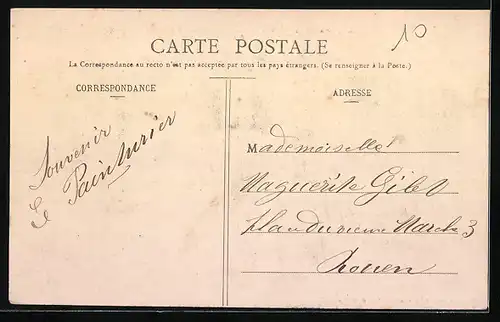 10
CARTE POSTALE
La Correspondance au recto n'est pas acceptée par tous les pays étrangers. (Se renseigner à la Poste.)
CORRESPONDANCE
ADRESSE
Souvenir
Le Painturier
Mademoiselle
Maguerite
Place du vieux Marché 3
Rouen